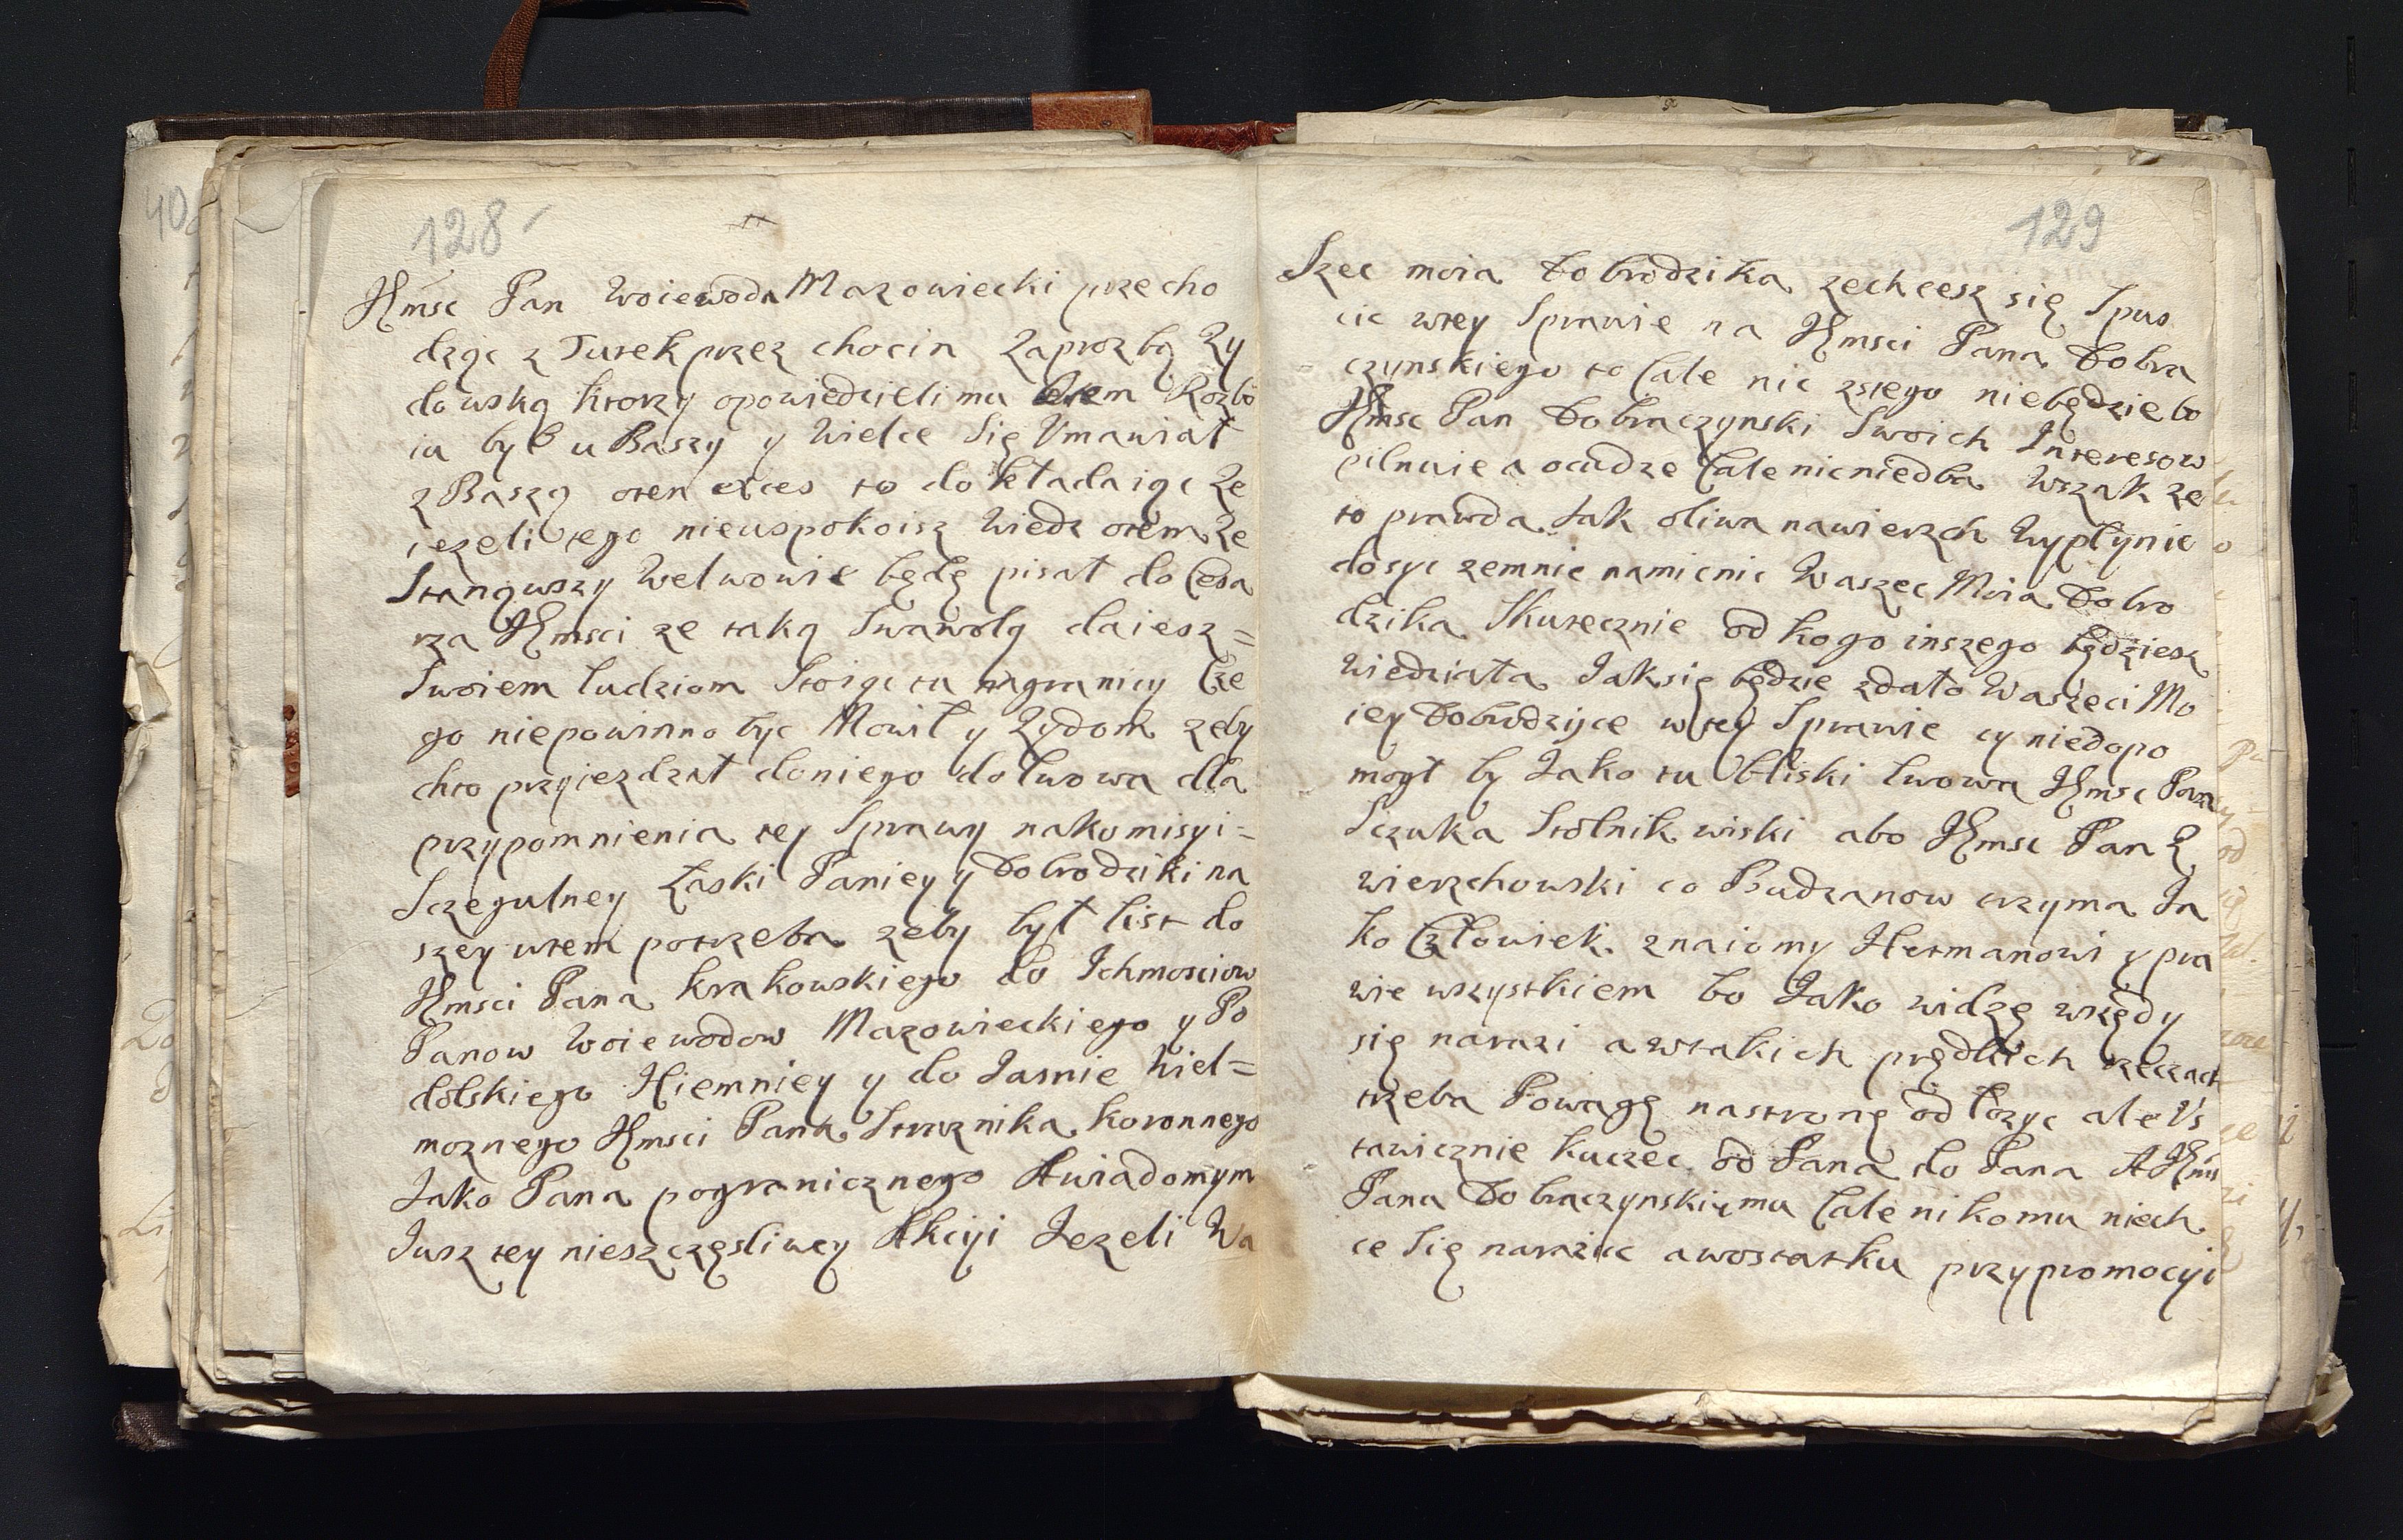 128
JEmsc Pan Woiewoda Mazowiecki przecho
dząc z Turek przez chocin Zaprozbą Zy
dowską ktorzy opowiedzieli mu otem Rozbo
iu był u Baszy y Wielce Się Umawiał
z Baszą oten exces to dokładaiąc Ze
iezeli tego nieuspokoisz Wiedz otem Ze
Stanąwszy Welwowie będę pisał do Cesa
rza JEmsci ze taką Swawolą daiesz=
Swoiem ludziom Stoiąc tu nagranicy Cze
go niepowinno być Mowił y Zydom zeby
chto przyiezdzał doniego do lwowa dla
przypomnienia tey Sprawy nakomisyi=
Sczegulney Łaski Paniey y Dobrodziki na
szey wtem potrzeba zeby był list do
JEmsci Pana krakowskiego do Ichmosciow
Panow Woiewodow Mazowieckiego y Po
dolskiego Niemniey y do Jasnie Wiel=
moznego JEmsci Pana Straznika koronnego
Jako Pana pogranicznego Awiadomym
Jusz tey nieszczęsliwey Akcyi Jezeli Wa
129
Szec moia Dobrodzika zechcesz się Spus
cic wtey Sprawie na JEmsci Pana Dobra
czynskiego to Cale nic zstego niebędzie bo
JEmsc Pan Dobraczynski Swoich Interesow
pilnuie a ocudze Cale nic niedba Wszak ze
to prawda Jak oliwa nawierzch Wypłynie
dosyc zemnie namienic Waszec Moia Dobro
dzika Skutecznie od kogo inszego będziesz
Wiedziała Jak się będzie zdało Waszeci Mo
iey Dobrodziyce wtey Sprawie cy niedopo
mogł by Jako tu bliski lwowa JEmsc Pan
Sczuka Stolnik wiski abo JEmsc Pan Z
wierzchowski co Budzanow trzyma Ja
ko Człowiek znaiomy Hetmanowi y pra
wie wszystkiem bo Jako widzę wzędy
się narazi a wtakich prędkich rzeczach
trzeba Powagę nastronę odłozyc ale Us
tawicznie kuczec od Pana do Pana A JEms
Pana Dobraczynskiemu Cale nikomu niech
ce Się narazic awostatku przypromocyi